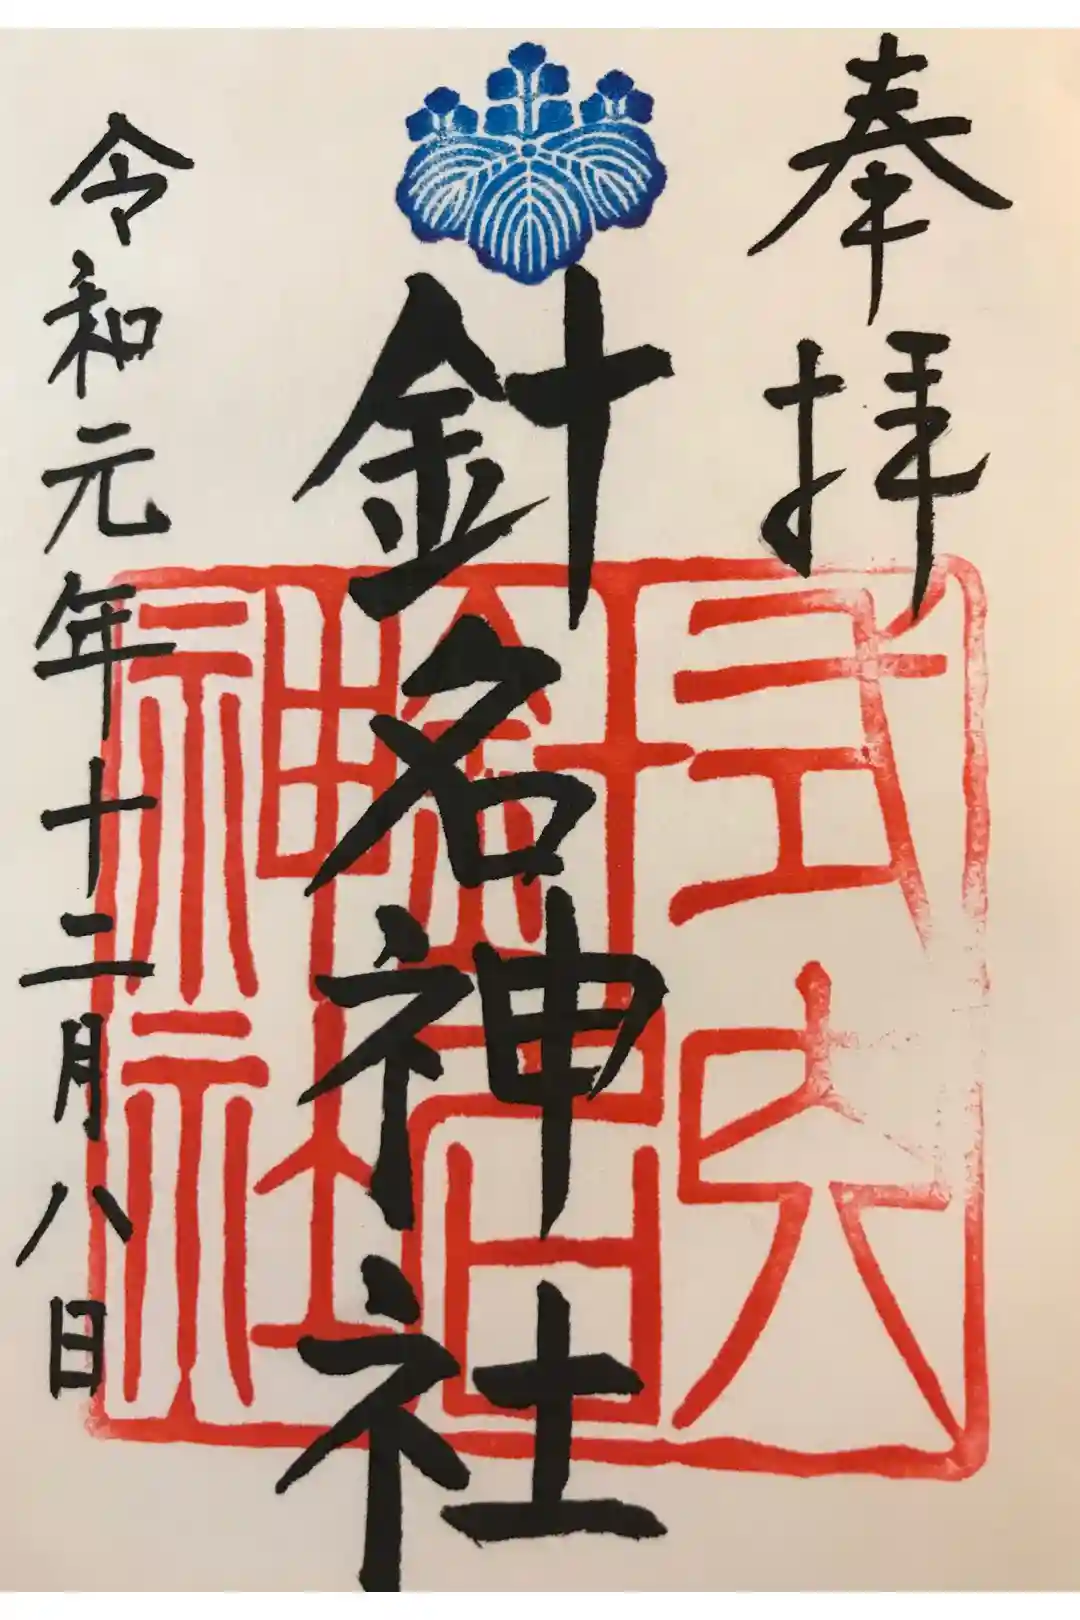 奉拝
針名神社
令和元年十二月八日
式内
針名
神社